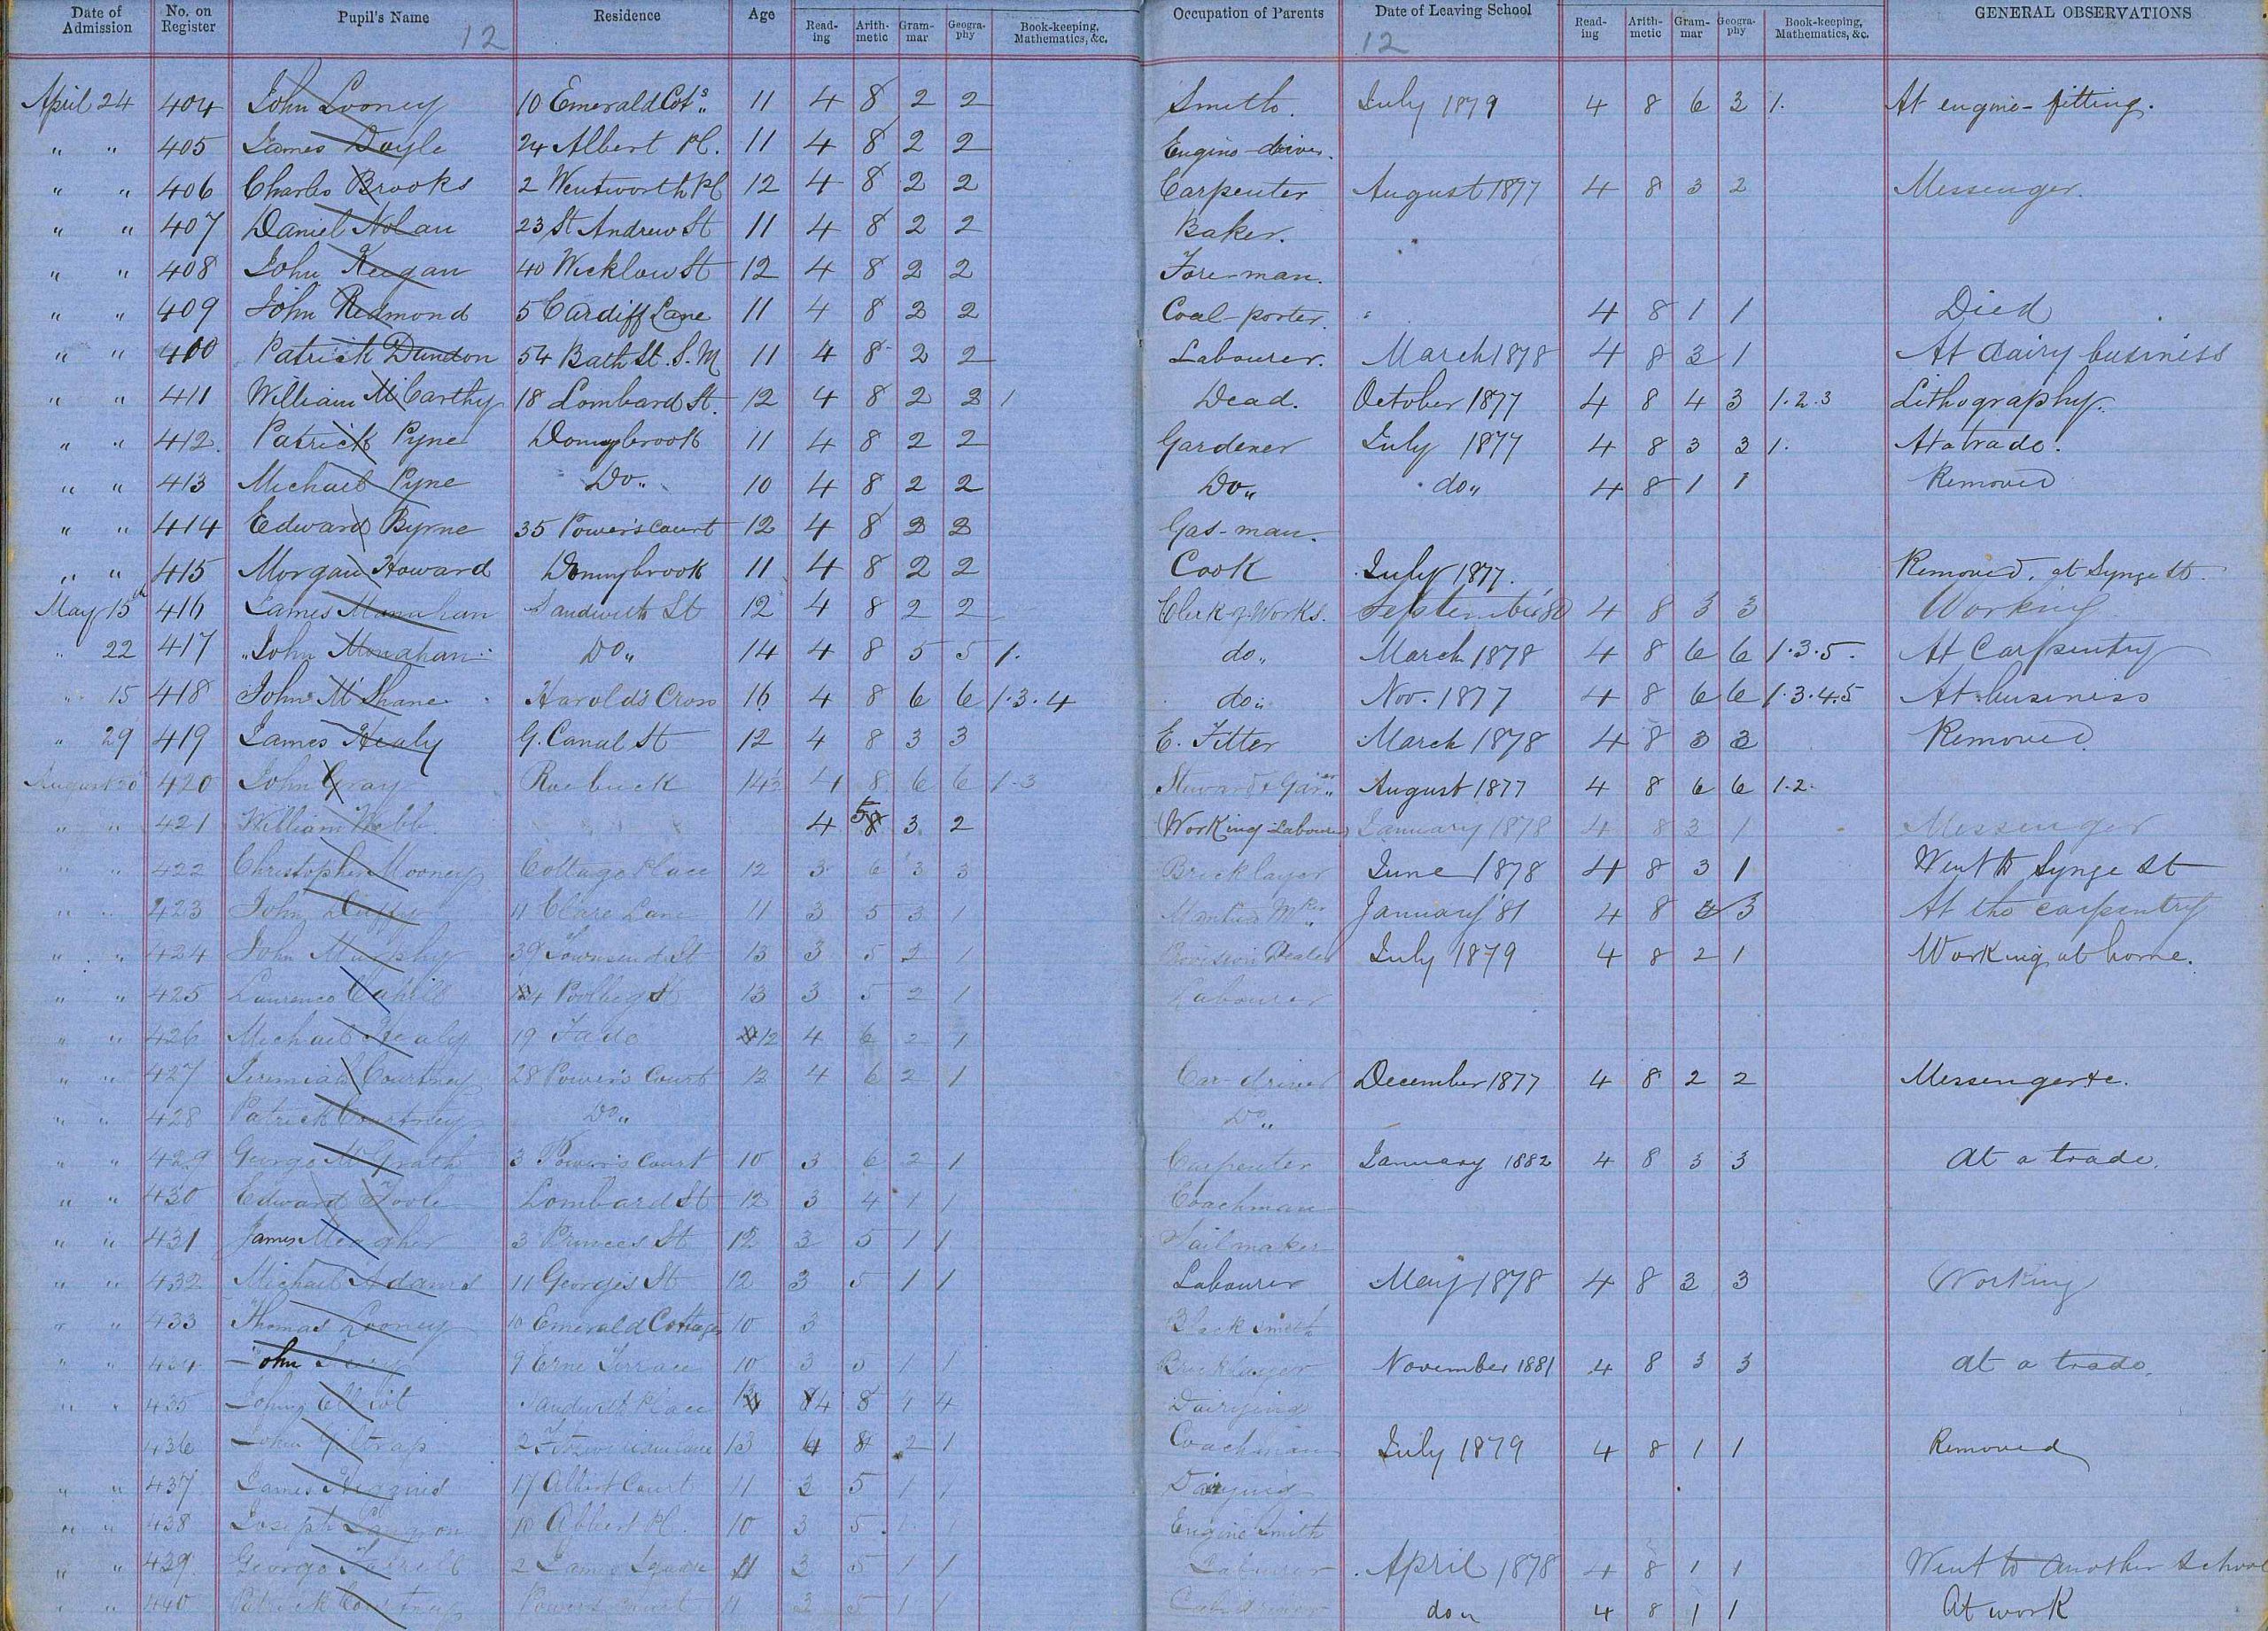 Date of Admission No. on Register Pupil's Name Residence Age Read-ing Arith-metic Gram-mar Geogra-phy Book-keeping, Mathematics, &c. Occupation of Parents Date of Leaving School Read-ing Arith-metic Gram-mar Geogra-phy Book-keeping, Mathematics, &c. GENERAL OBSERVATIONS
12 12
April 24 404 John Looney 10 Emerald Cots 11 4 8 2 2 Smith. July 1879 4 8 6 3 1. At engine-fitting.
" " 405 James Doyle 24 Albert Pl. 11 4 8 2 2 Engine-driver.
" " 406 Charles Brooks 2 Wentworth Pl 12 4 8 2 2 Carpenter August 1877 4 8 3 2 Messenger.
" " 407 Daniel Nolan 23 St Andrew St 11 4 8 2 2 Baker.
" " 408 John Keegan 40 Wicklow St 12 4 8 2 2 Foreman.
" " 409 John Redmond 5 Cardiff Lane 11 4 8 2 2 Coal-porter. 4 8 1 1 Died
" " 410 Patrick Dundon 54 Bath St. S. M 11 4 8 2 2 Labourer. March 1878 4 8 3 1 At dairy business
" " 411 William McCarthy 18 Lombard St. 12 4 8 2 3 1 Dead. October 1877 4 8 4 3 1.2.3 Lithography.
" " 412. Patrick Pyne Donnybrook 11 4 8 2 2 Gardener July 1877 4 8 3 3 1. At a trade.
" " 413 Michael Pyne Do " 10 4 8 2 2 Do " do " 4 8 1 1 Removed
" " 414 Edward Byrne 35 Power's Court 12 4 8 2 2 Gas-man.
" " 415 Morgan Howard Donnybrook 11 4 8 2 2 Cook July 1877. Removed. at Synge St.
May 15th 416 James Monahan Sandwith St 12 4 8 2 2 Clerk of Works. September 80 4 8 3 3 Working
" 22 417 John Monahan Do " 14 4 8 5 5 1. do " March 1878 4 8 6 6 1.3.5. At Carpentry
" 15 418 John McShane Harold's Cross 16 4 8 6 6 1.3.4 do " Nov. 1877 4 8 6 6 1.3.4.5 At business
" 29 419 James Healy G. Canal St 12 4 8 3 3 E. Fitter March 1878 4 8 3 3 Removed.
August 20 420 John Gray Roebuck 14½ 4 8 6 6 1.3 Steward & Gar'er August 1877 4 8 6 6 1.2.
" " 421 William Webb 4 5 3 2 (Working Labourer) January 1878 4 8 3 1 Messenger
" " 422 Christopher Mooney Cottage Place 12 3 6 3 3 Bricklayer June 1878 4 8 3 1 Went to Synge St
" " 423 John Duffy 11 Clare Lane 11 3 5 3 1 Mantua Mr January '81 4 8 3 3 At the carpentry
" " 424 John Murphy 39 Townsend St 13 3 5 2 1 Provision Dealer July 1879 4 8 2 1 Working at home.
" " 425 Laurence Cahill Poolbeg St 13 3 5 2 1 Labourer
" " 426 Michael Healy 19 12 4 6 2 1
" " 427 Jeremiah Courtney 28 Power's Court 12 4 6 2 1 Car driver December 1877 4 8 2 2 Messenger &c.
" " 428 Patrick Courtney Do " Do "
" " 429 George McGrath 3 Power's Court 10 3 6 2 1 Carpenter January 1882 4 8 3 3 at a trade.
" " 430 Edward Toole Lombard St 12 3 4 1 1 Coachman
" " 431 James Meagher 3 Princes St 12 3 5 1 1 Sailmaker
" " 432 Michael Adams 11 George's St 12 3 5 1 1 Labourer May 1878 4 8 3 3 Working
" " 433 Thomas Looney 10 Emerald Cottages 10 3 Blacksmith
" " 434 John 9 Erne Terrace 10 3 5 1 1 Bricklayer November 1881 4 8 3 3 at a trade.
" " 435 John Elliot Sandwith Place 4 8 1 4 Dairying
436 John Giltrap 2 Fitzwilliam Lane 13 4 8 2 1 Coachman July 1879 4 8 1 1 Removed
" " 437 James Higgins 17 Albert Court 11 3 5 1 1 Dairying
" " 438 Joseph 10 Albert Pl. 10 3 5 1 1 Engine Smith
" " 439 George Farrell 2 Square 11 3 5 1 1 Labourer April 1878 4 8 1 1 Went to another school
" " 440 Patrick Courtney Powers Court 11 3 5 1 1 Cab driver do " 4 8 1 1 At work